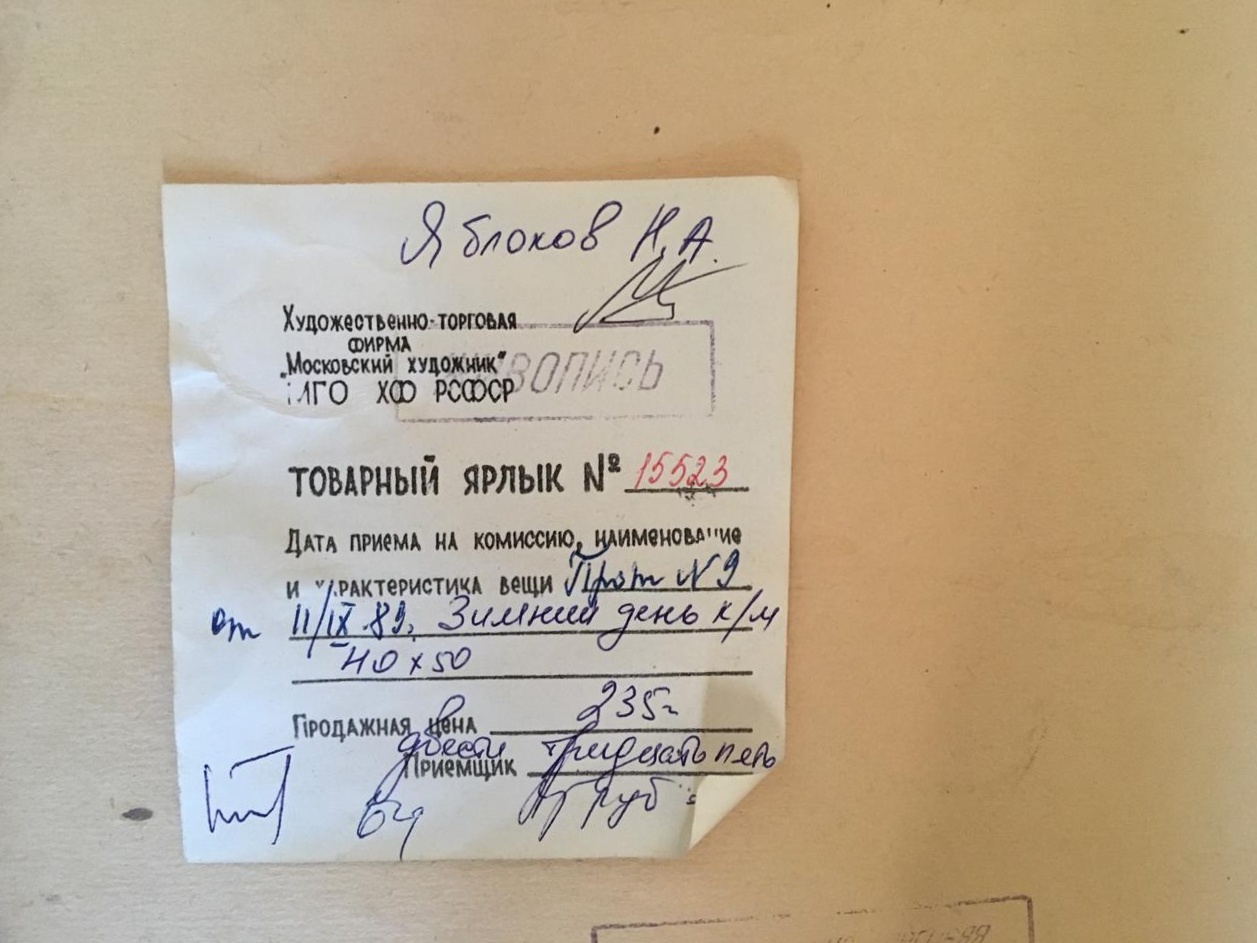 Яблоков Н.А.
Художественно-торговая
фирма
"Московский художник"
МГО ХФ РСФСР
ЖИВОПИСЬ
ТОВАРНЫЙ ЯРЛЫК № 15523
Дата приема на комиссию, наименование
и характеристика вещи Прот N 9
от 11/IX.89. Зимний день к/м
40 x 50
Продажная цена 235-
двести тридцать пять
Приемщик
руб